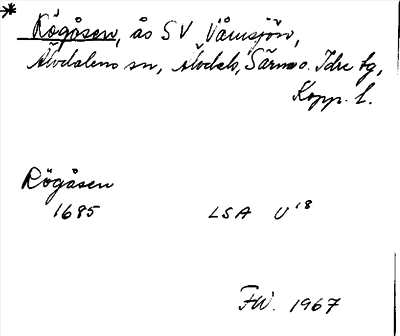 * Rögåsen, ås SV Våmsjön,
Älvdalens sn, Älvdals, Särna o. Idre tg,
Kopp. l.
Rögåsen
1685 LSA U18
FW. 1967